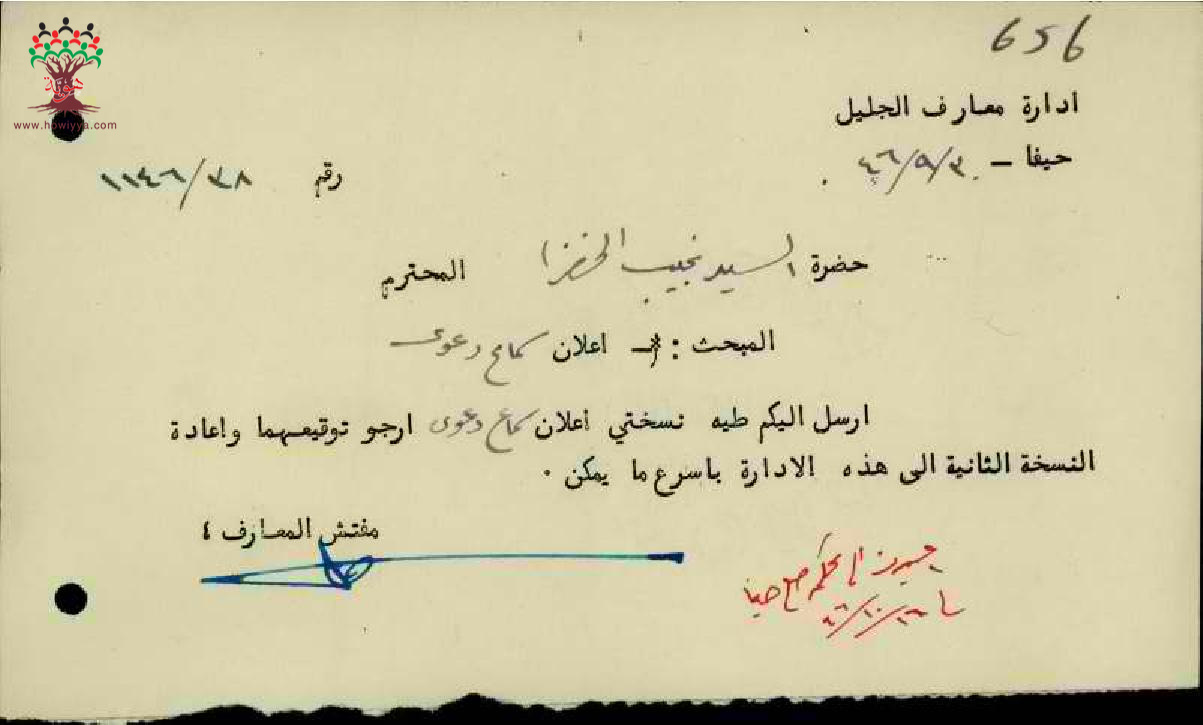 656
هوية
www.howiyya.com
ادارة معارف الجليل
حيفا – ٤٦/٩/٣٠
رقم ١١٤٦/٣٨
حضرة السيد نجيب الخضرا المحترم
المبحث : – اعلان سماع دعوى
ارسل اليكم طيه نسختي اعلان سماع دعوى ارجو توقيعهما واعادة
النسخة الثانية الى هذه الادارة باسرع ما يمكن ٠
مفتش المعارف ٤
صلح حيفا
٤٦/١٠/١٦